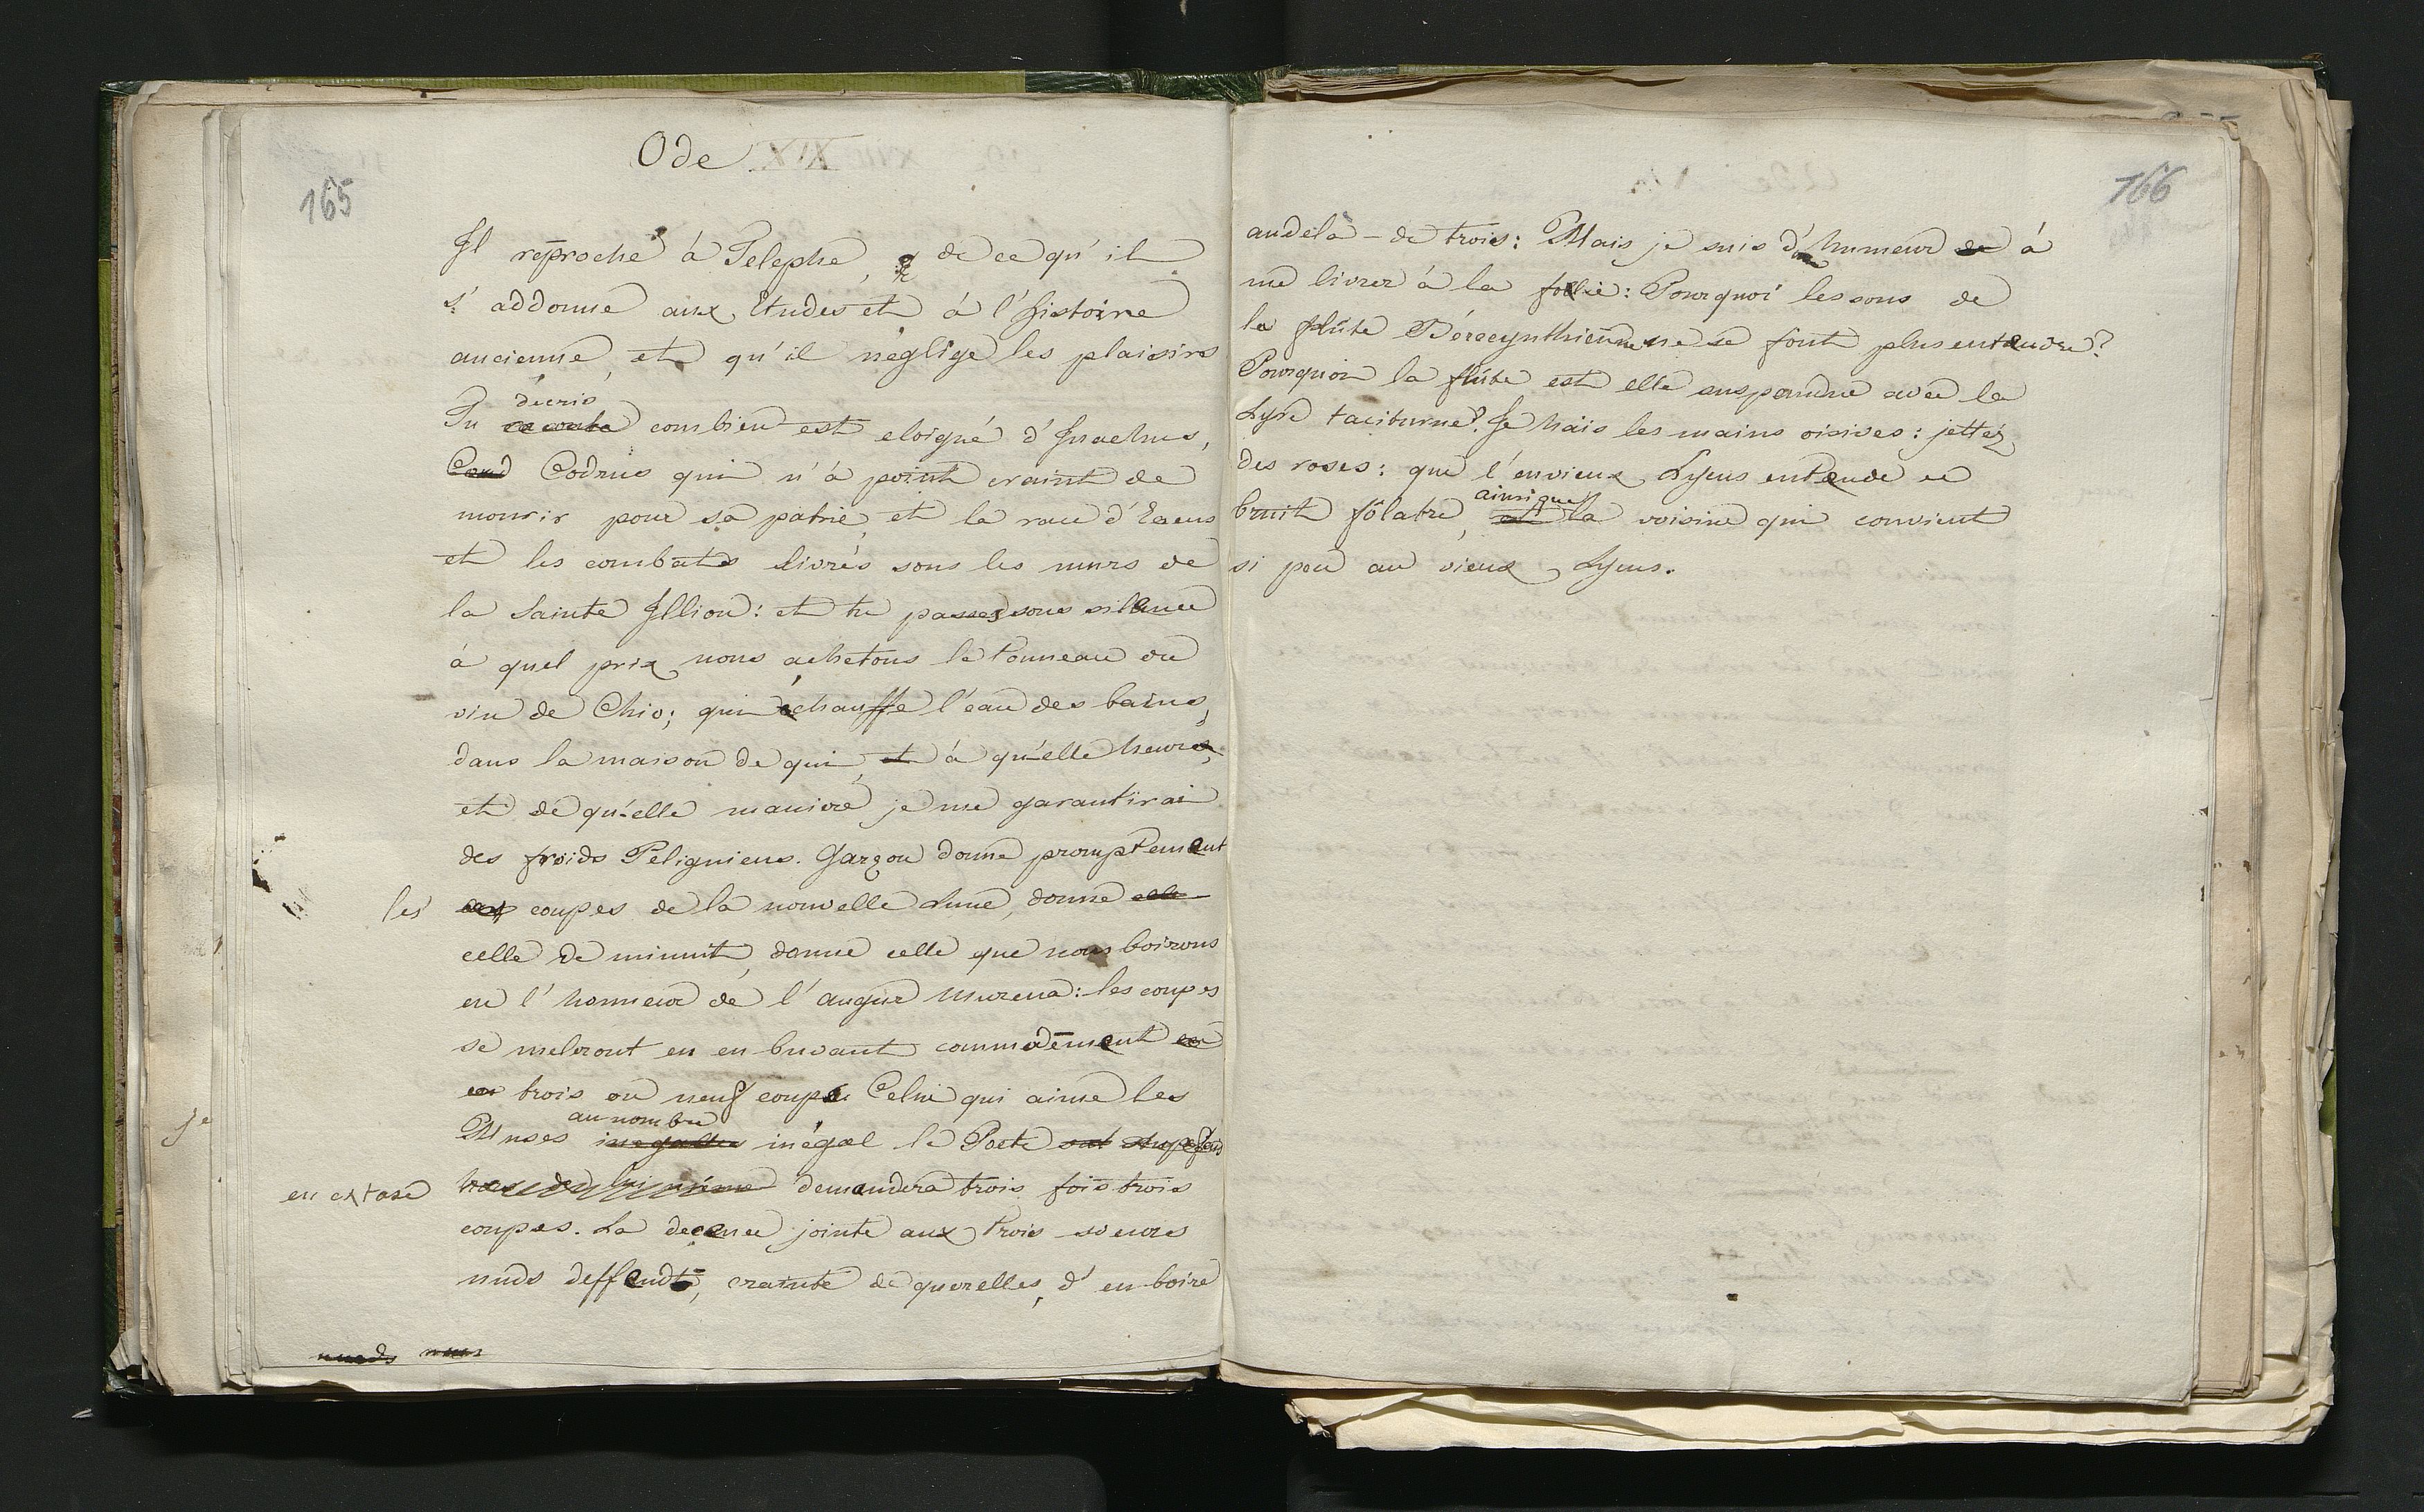 Ode XIX
165
Il réproche à Telephe, de ce qu'il
s'addonne aux Etudes et à l'histoire
ancienne, et qu'il néglige les plaisirs
décris
Tu raconte combien est eloigné d'Inachus,
Cod Codrus qui n'à point craint de
mourir pour sa patrie, et la race d'Eaeus
et les combats livrés sous les murs de
la Sainte Illion: et tu passes sous silence
à quel prix nous achetons le tonneau du
vin de Chio; qui échauffe l'eau des bains,
dans la maison de qui, et à qu'elle heure,
et de qu'elle maniere je me garantirai
des froids Peligniens. Garçon donne promptement
les des coupes de la nouvelle Lune, donne celle
celle de minuit, donne celle que nous boirons
en l'honneur de l'augure Murena: les coupes
se meleront en en buvant commodément en
en trois ou neuf coupes Celui qui aime les
au nombre
Muses inegalles inégal le Poete
en extase lui même demandera trois fois trois
coupes. La decence jointe aux trois soeurs
nuds deffendt, crainte de querelles, d'en boire
nuds nues
je
166
audelà de trois: Mais je suis d'humeur de à
me livrer à la follie: Pourquoi les sons de
la flûte Bérecynthienne ne se font plus entendre?
Pourquoi la flûte est elle suspendue avec la
Lyre taciturne? Je hais les mains oisives: jettéz
des roses: que l'envieux Lycus entende ce
ainsi que
bruit fôlatre, et la voisine qui convient
si peu au vieux Lycus.